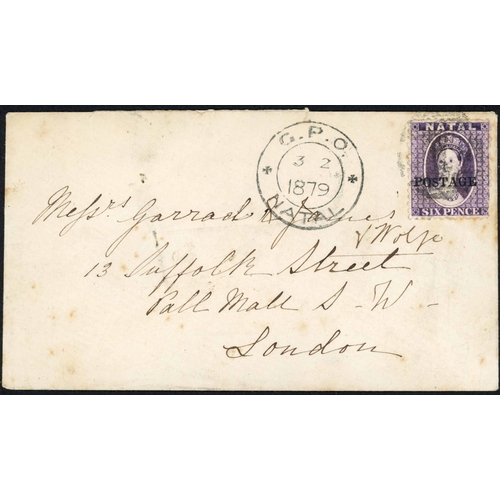 G.P.O.
3 2
1879
NATAL
NATAL
POSTAGE
SIX PENCE
Messrs Garrad & James
& Wolfe
13 Suffolk Street
Pall Mall S-W-
London